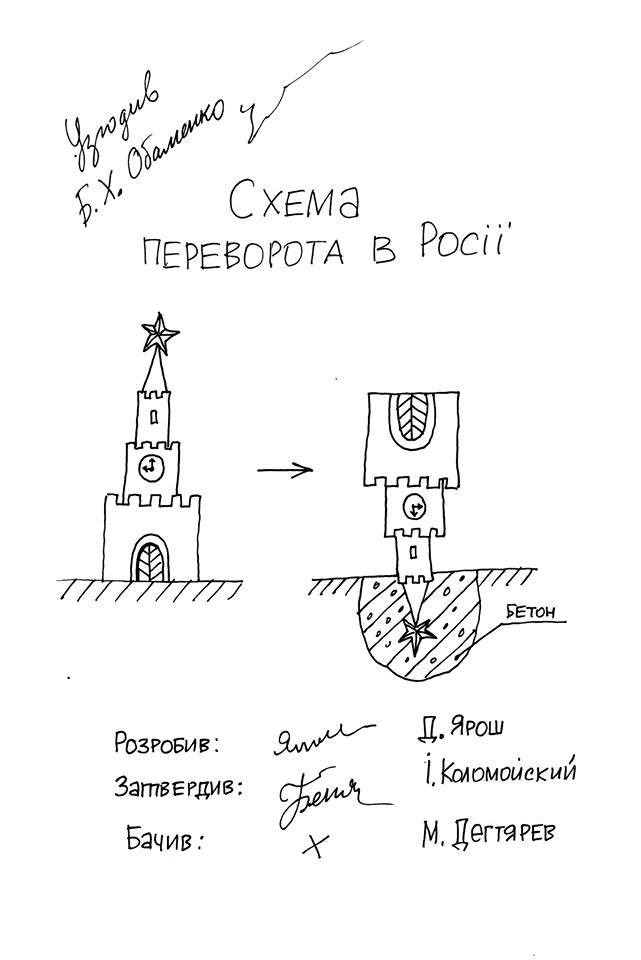 Узгодив
Б. Х. Обаменко
Схема
ПЕРЕВОРОТА В РОСІЇ
БЕТОН
Розробив: Д. ЯРОШ
Затвердив: Беня І. Коломойский
Бачив: Х М. Дегтярев